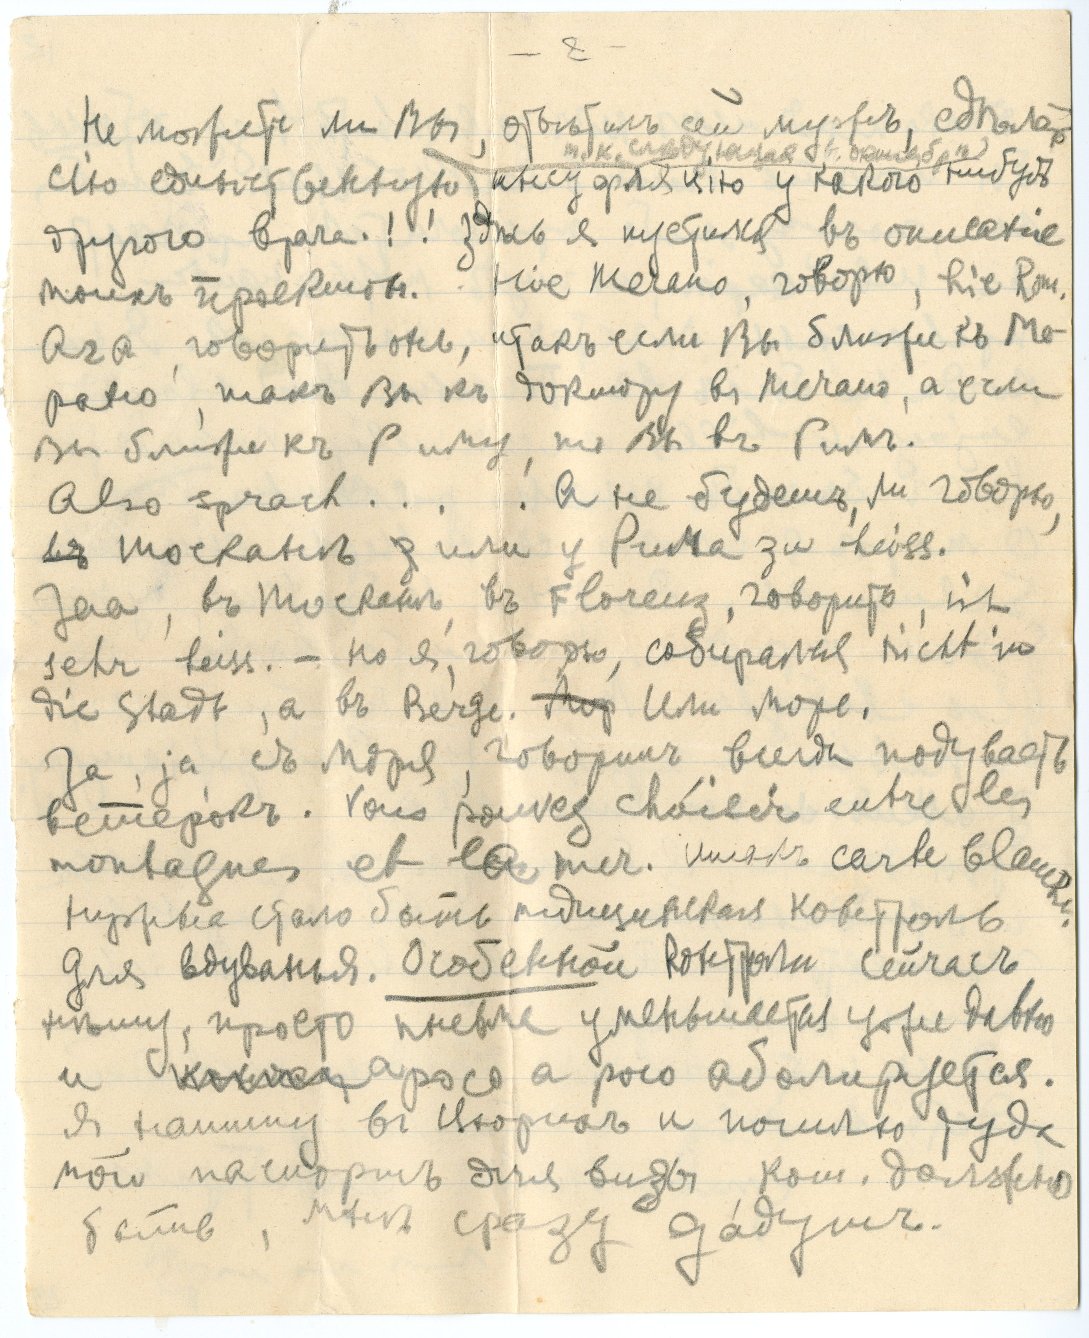 – 2 –
Не можете ли Вы, отвѣтилъ сей мужъ, сдѣлать
т. к. слѣдующая въ октябрѣ
сію единственную инсуфляцію у какого нибудь
другого врача.!! Здѣсь я пустился въ описаніе
моихъ проектовъ. Hie Merano, говорю, hie Rom.
Ага, говоритъ онъ, итакъ если Вы ближе къ Ме-
рано, такъ Вы къ доктору въ Merano, а если
Вы ближе къ Риму, то Вы въ Римъ.
Also sprach . . . . А не будетъ ли говорю,
въ Тосканѣ или у Рима zu heiss.
Jaa, въ Тосканѣ, въ Florenz, говоритъ, ist
sehr heiss. – Но я, говорю, собирался nicht in
die Stadt, а въ Berge. Мор Или море.
Ja, ja, съ моря, говоритъ всегда подуваетъ
ветерокъ. Vous pouvez choisir entre les
montagnes et la mer. Итакъ carte blanche.
Нужна стало быть медицинская контроль
для вдуванья. Особенной контроли сейчасъ
нѣту, просто пневма уменьшается уже давно
и аросо а росо аболируется.
Я напишу въ Цюрихъ и пошлю туда
мой паспортъ для визы, кот. должно
быть, мнѣ сразу дадутъ.